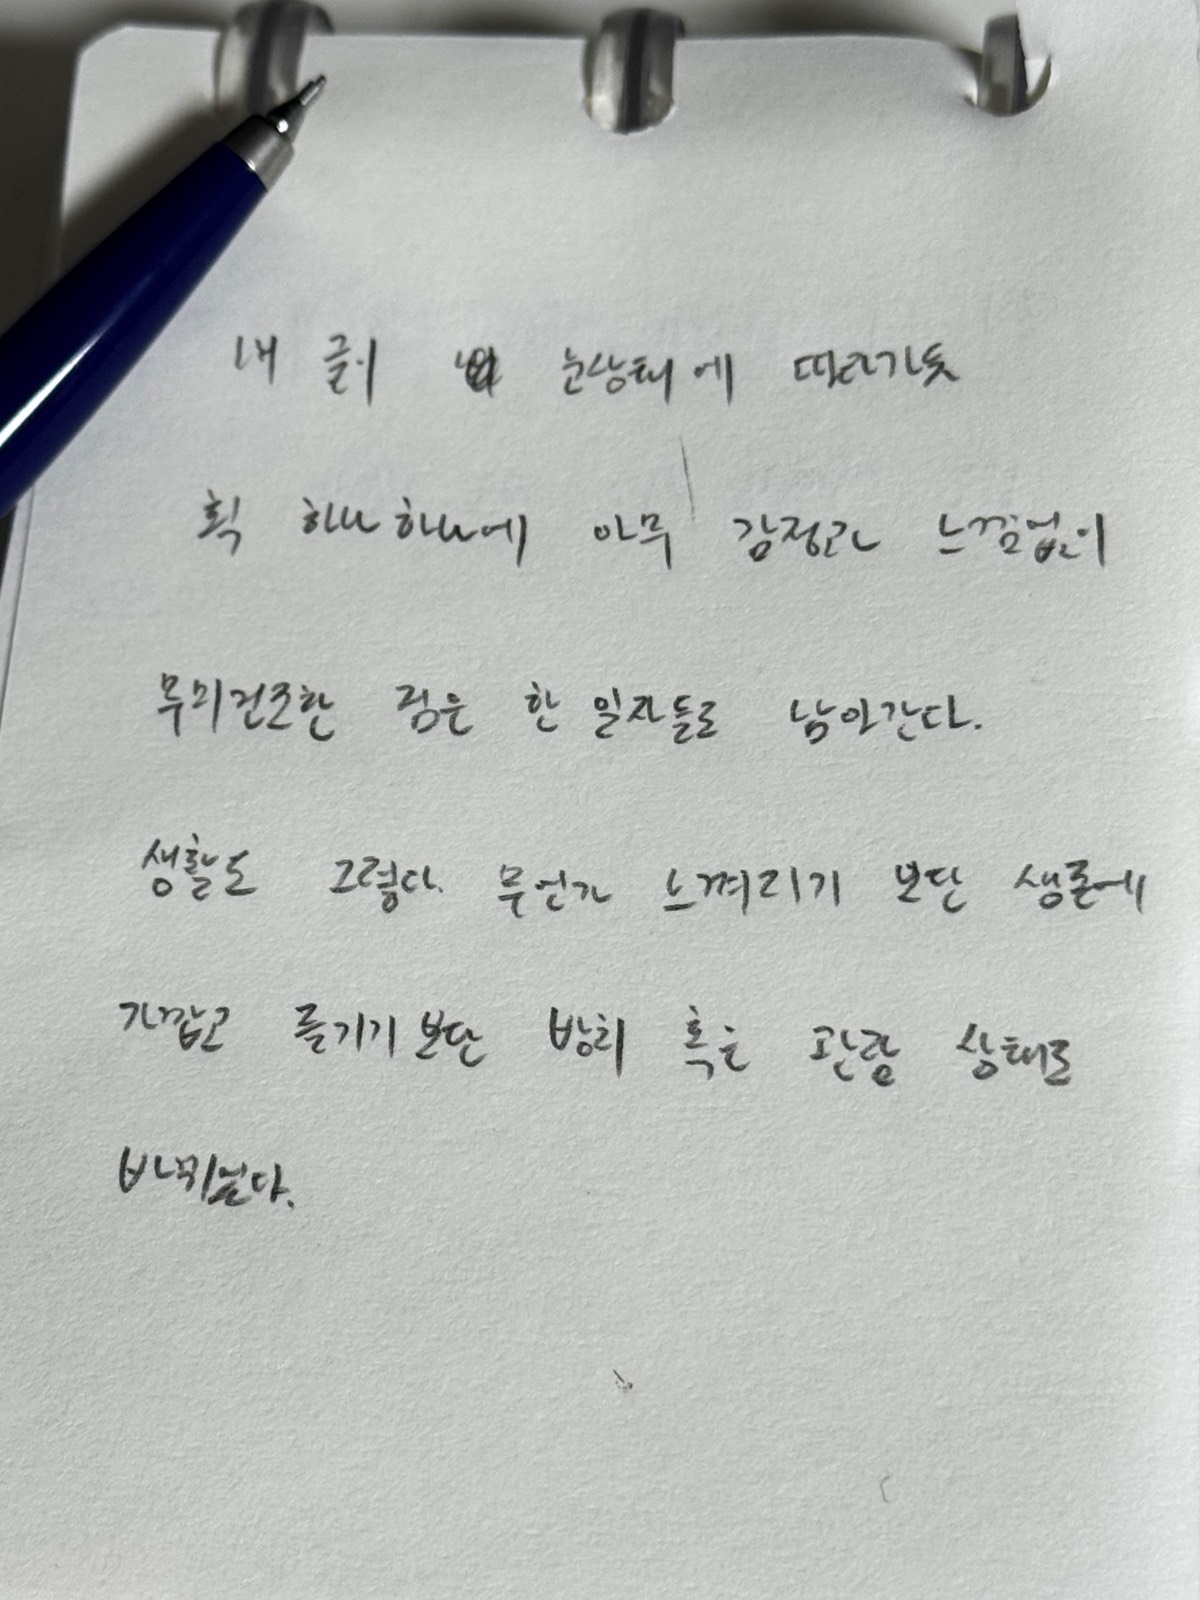 내 글이 눈상태에 따라가듯
획 하나하나에 아무 감정과 느낌없이
무미건조한 검은 한 일자들로 남아간다.
생활도 그렇다. 무언가 느껴지기 보단 생존에
가깝고 즐기기 보단 방치 혹은 관람 상태로
바뀌었다.